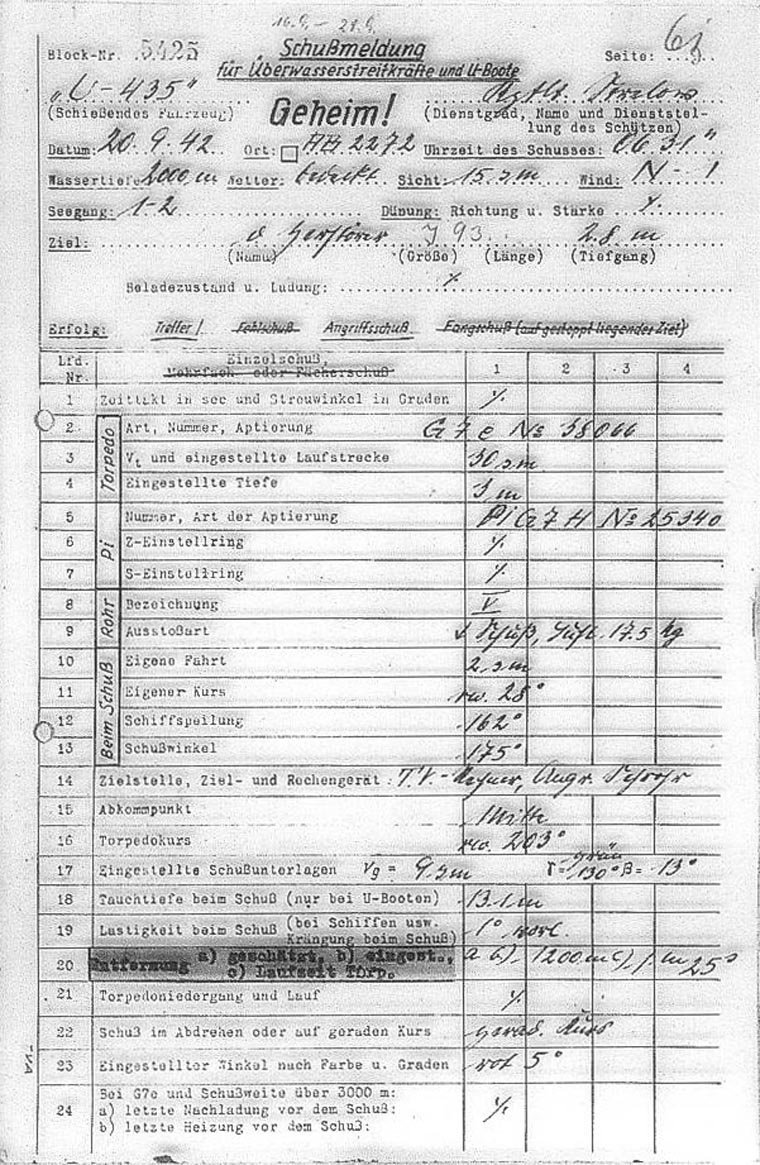 16.9. – 28.9.
Block-Nr. 5425 Schußmeldung Seite: 6j
für Überwasserstreitkräfte und U-Boote
"U-435" Geheim! Kptlt. Strelow
(Schießendes Fahrzeug) (Dienstgrad, Name und Dienststel-
lung des Schützen)
Datum: 20.9.42 Ort: AB 2272 Uhrzeit des Schusses: 06.31"
Wassertiefe 2000 m Wetter: bedeckt Sicht: 15 sm Wind: N-1
Seegang: 1-2 Dünung: Richtung u. Stärke ./.
Ziel: Zerstörer 2.8 m
(Name) (Größe) (Länge) (Tiefgang)
Beladezustand u. Ladung: ./.
Erfolg: Treffer! Fehlschuß Angriffsschuß Fangschuß (auf gestoppt liegendes Ziel)
Lfd. Nr. Einzelschuß, Mehrfach- oder Fächerschuß 1 2 3 4
1 Zeittakt in sec und Streuwinkel in Graden ./.
Torpedo
2 Art, Nummer, Aptierung G7e No 38066
3 Vt und eingestellte Laufstrecke 30 sm
4 Eingestellte Tiefe 3 m
Pi
5 Nummer, Art der Aptierung Pi G7H No 25340
6 Z-Einstellring ./.
7 S-Einstellring ./.
Rohr
8 Bezeichnung V
9 Ausstoßart Schuß, Luft 17.5 kg
Beim Schuß
10 Eigene Fahrt 2 sm
11 Eigener Kurs rw. 28°
12 Schiffspeilung 162°
13 Schußwinkel 175°
14 Zielstelle, Ziel- und Rechengerät: T.V.-Rechner, Angr. Sehrohr
15 Abkommpunkt Mitte
16 Torpedokurs rw. 203°
17 Eingestellte Schußunterlagen Vg = 9 sm γ = grün 130° β = 13°
18 Tauchtiefe beim Schuß (nur bei U-Booten) 13.1 m
19 Lastigkeit beim Schuß (bei Schiffen usw. Krängung beim Schuß) 1° vorl.
20 Entfernung a) geschätzt, b) eingest., c) Laufzeit Torp. a b) 1200 m c) 1 m 25s
21 Torpedoniedergang und Lauf ./.
22 Schuß im Abdrehen oder auf geraden Kurs gerad. Kurs
23 Eingestellter Winkel nach Farbe u. Graden rot 5°
24 Bei G7e und Schußweite über 3000 m:
a) letzte Nachladung vor dem Schuß: ./.
b) letzte Heizung vor dem Schuß: